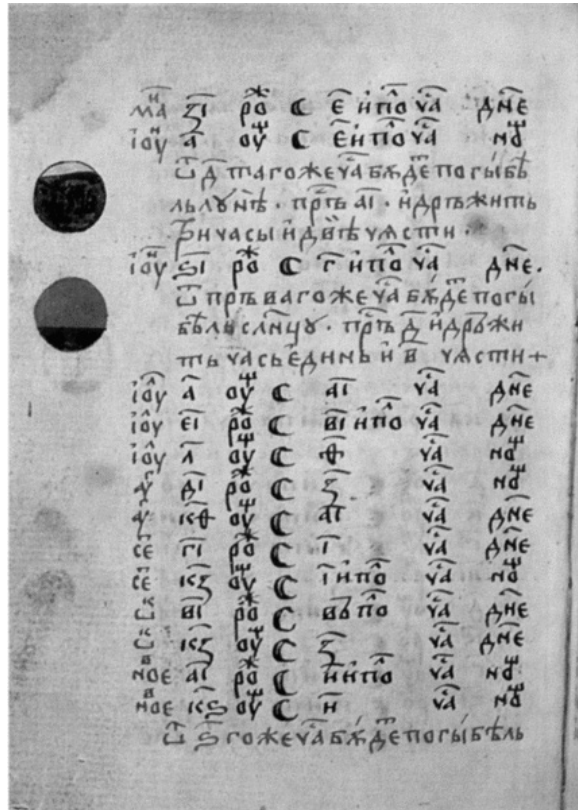 маⷩ҇ з҃і роⷤ ☾ е҃ и҆ поⷧ҇ чⷭ҇а дн҃е
і҆оуⷩ҇ а҃ оуⷳ ☾ е҃ и҆ поⷧ҇ чⷭ҇а ноⷳ
ѿ д҃ тагоже чⷭ҇а бѫдⷮе погы́бѣ
льлꙋ́нѣ · прѣⷤ а҃і · и҆дръжить
г҃ꙵичасы и҆двѣ чѧсти ·
і҆оуⷩ҇ ѕ҃і роⷤ ☾ г҃ и҆ поⷧ҇ чⷭ҇а дн҃е.
ѿ пръвагоже чⷭ҇а бѫдⷮе погы́
бѣльсл҃нцꙋ · прѣⷤ д҃ и҆дръжи
ть чⷭ҇асьєди́нь и҆ в҃ чѧсти +
і҆оуⷧ҇ а҃ оуⷳ ☾ а҃і чⷭ҇а дн҃е
і҆оуⷧ҇ е҃і роⷤ ☾ в҃і и҆ поⷧ҇ чⷭ҇а дн҃е
і҆оуⷧ҇ л҃ оуⷳ ☾ ѳ҃ чⷭ҇а ноⷳ
аѵⷢ҇ д҃і роⷤ ☾ з҃ чⷭ҇а ноⷳ
аѵⷢ҇ к҃ѳ оуⷳ ☾ а҃і чⷭ҇а дн҃е
сеⷫ҇ г҃і роⷤ ☾ і҃ чⷭ҇а дн҃е
сеⷫ҇ к҃з оуⷳ ☾ і҃ и҆ поⷧ҇ чⷭ҇а ноⷳ
ѡⷦ҇ в҃і роⷤ ☾ в҃ъ поⷧ҇ чⷭ҇а дн҃е
ѡⷦ҇ к҃з оуⷳ ☾ з҃ чⷭ҇а дн҃е
ноеⷡ҇ а҃і роⷤ ☾ и҃ и҆ поⷧ҇ чⷭ҇а ноⷳ
ноеⷡ҇ к҃ѕ оуⷳ ☾ и҃ чⷭ҇а ноⷳ
ѿ ѕ҃ гоже чⷭ҇а бѫдⷮе погы́бѣль